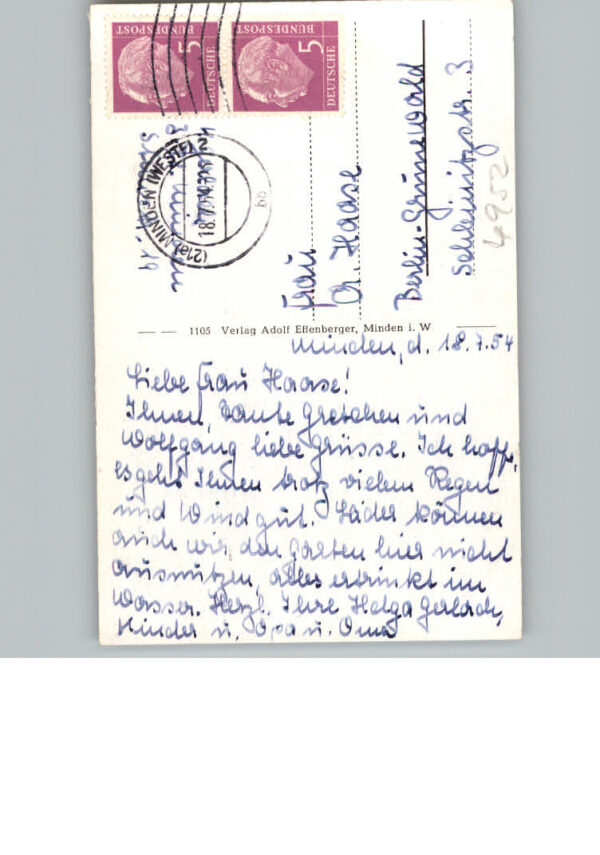 DEUTSCHE
BUNDESPOST
5
DEUTSCHE
BUNDESPOST
5
(21a) MINDEN (WESTF) 2
18.7.54
bc
Frau
Haase
Berlin-Grunewald
Schleinitzstr. 3
4952
1105 Verlag Adolf Effenberger, Minden i. W.
Minden, d. 18.7.54
Liebe Frau Haase!
Ihnen, Tante Gretchen und
Wolfgang liebe Grüsse. Ich hoffe,
es geht Ihnen trotz vielem Regen
und Wind gut. Leider können
auch wir den Garten hier nicht
ausnutzen, alles ertrinkt im
Wasser. Herzl. Ihre Helga Gerlach,
Kinder u. Opa u. Oma